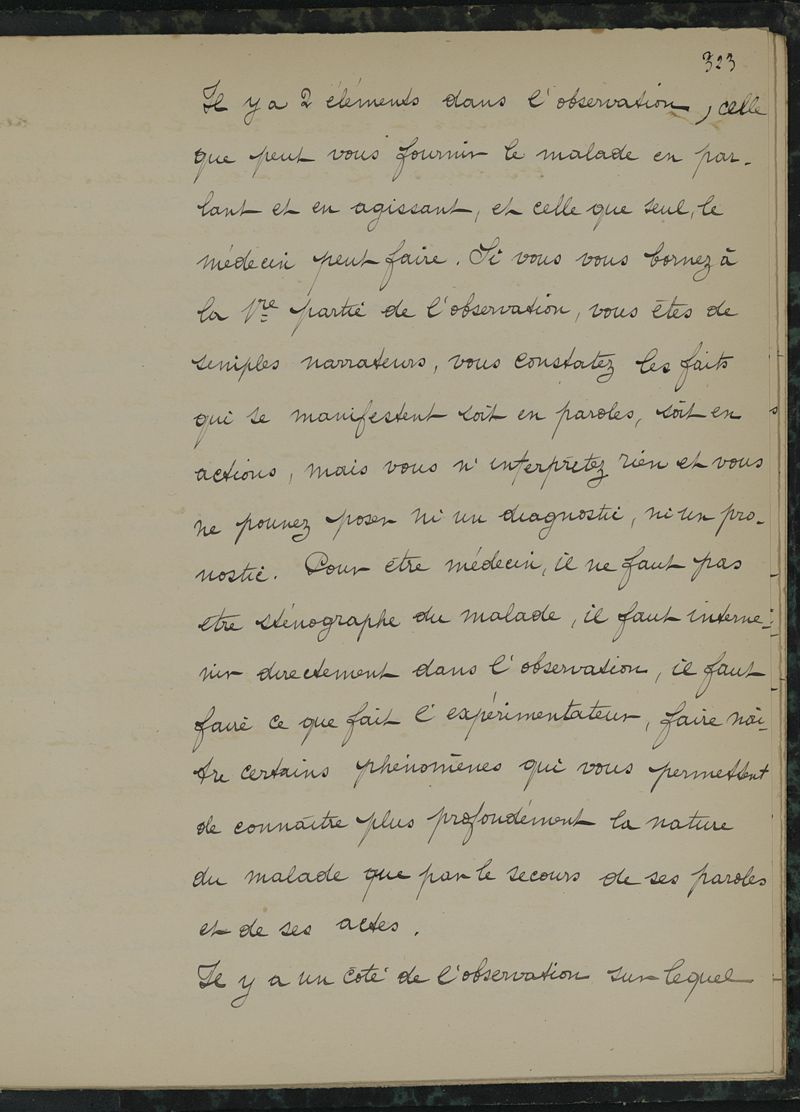 323
Il y a 2 éléments dans l'observation, celle
que peut vous fournir le malade en par-
lant et en agissant, et celle que seul, le
médecin peut faire. Si vous vous bornez à
la 1re partie de l'observation, vous êtes de
simples narrateurs, vous constatez les faits
qui se manifestent soit en paroles, soit en
actions, mais vous n'interprétez rien et vous
ne pouvez poser ni un diagnostic, ni un pro-
nostic. Pour être médecin, il ne faut pas
être sténographe du malade, il faut interve-
nir directement dans l'observation, il faut
faire ce que fait l'expérimentateur, faire naî-
tre certains phénomènes qui vous permettent
de connaître plus profondément la nature
du malade que par le secours de ses paroles
et de ses actes.
Il y a un côté de l'observation sur lequel